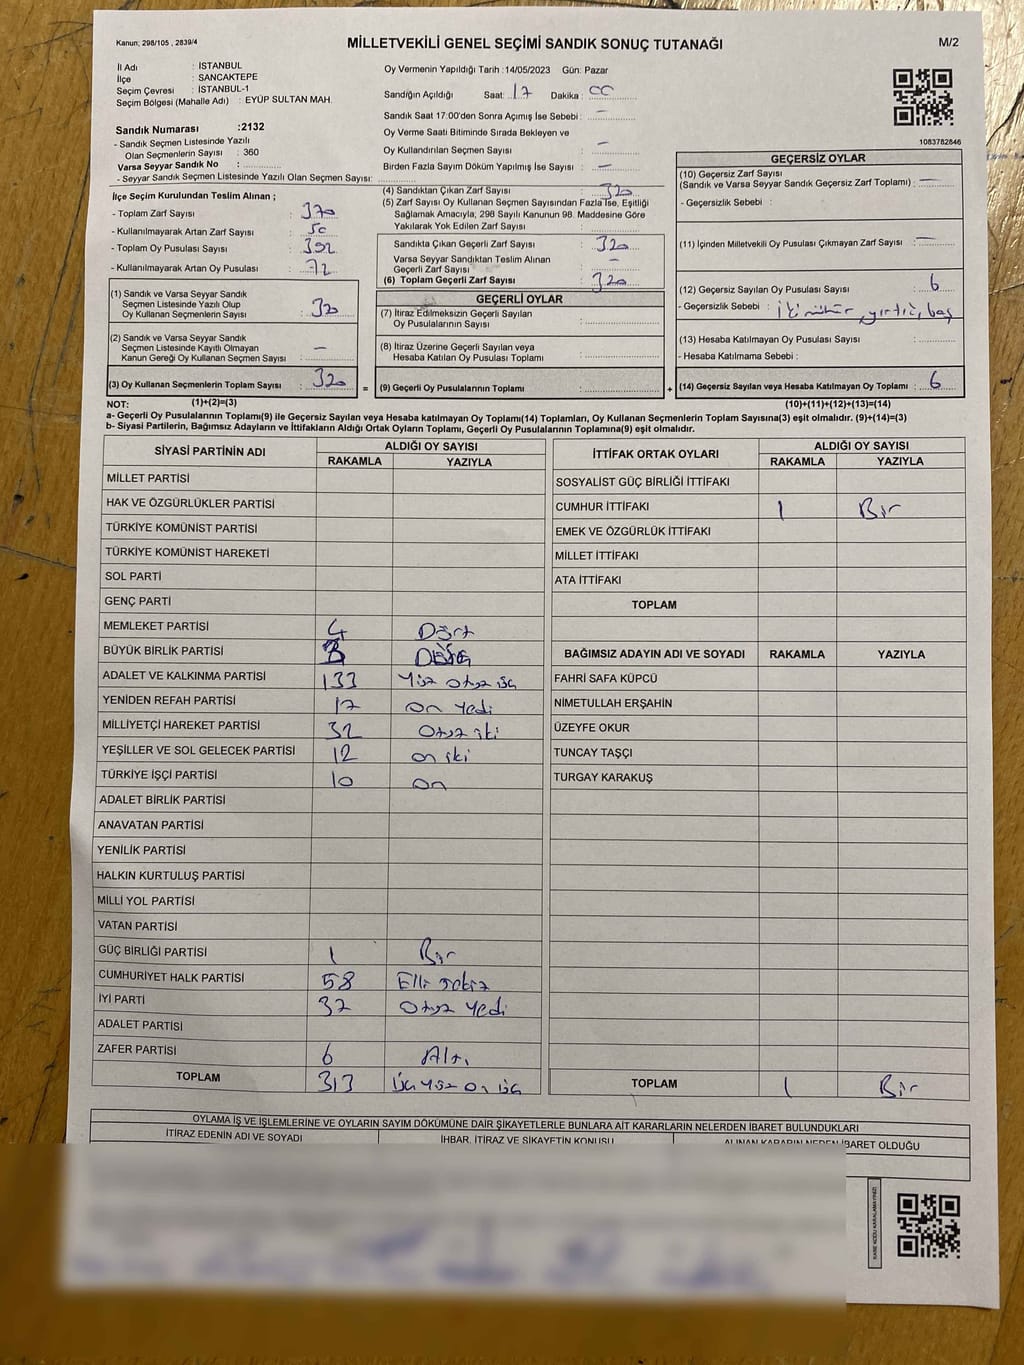 Kanun; 298/105 , 2839/4
MİLLETVEKİLİ GENEL SEÇİMİ SANDIK SONUÇ TUTANAĞI
M/2
İl Adı : İSTANBUL
İlçe : SANCAKTEPE
Seçim Çevresi : İSTANBUL-1
Seçim Bölgesi (Mahalle Adı) : EYÜP SULTAN MAH.
Sandık Numarası :2132
- Sandık Seçmen Listesinde Yazılı
Olan Seçmenlerin Sayısı : 360
Varsa Seyyar Sandık No :
- Seyyar Sandık Seçmen Listesinde Yazılı Olan Seçmen Sayısı:
Oy Vermenin Yapıldığı Tarih :14/05/2023 Gün: Pazar
Sandığın Açıldığı Saat: 17 Dakika : 00
Sandık Saat 17:00'den Sonra Açımış İse Sebebi : —
Oy Verme Saati Bitiminde Sırada Bekleyen ve
Oy Kullandırılan Seçmen Sayısı : —
Birden Fazla Sayım Döküm Yapılmış İse Sayısı : —
1083782846
İlçe Seçim Kurulundan Teslim Alınan ;
- Toplam Zarf Sayısı : 370
- Kullanılmayarak Artan Zarf Sayısı : 50
- Toplam Oy Pusulası Sayısı : 392
- Kullanılmayarak Artan Oy Pusulası : 72
(1) Sandık ve Varsa Seyyar Sandık
Seçmen Listesinde Yazılı Olup
Oy Kullanan Seçmenlerin Sayısı : 320
(2) Sandık ve Varsa Seyyar Sandık
Seçmen Listesinde Kayıtlı Olmayan
Kanun Gereği Oy Kullanan Seçmen Sayısı : —
(3) Oy Kullanan Seçmenlerin Toplam Sayısı : 320
(4) Sandıktan Çıkan Zarf Sayısı : 320
(5) Zarf Sayısı Oy Kullanan Seçmen Sayısından Fazla İse, Eşitliği
Sağlamak Amacıyla; 298 Sayılı Kanunun 98. Maddesine Göre
Yakılarak Yok Edilen Zarf Sayısı :
Sandıkta Çıkan Geçerli Zarf Sayısı : 320
Varsa Seyyar Sandıktan Teslim Alınan
Geçerli Zarf Sayısı : —
(6) Toplam Geçerli Zarf Sayısı : 320
GEÇERLİ OYLAR
(7) İtiraz Edilmeksizin Geçerli Sayılan
Oy Pusulalarının Sayısı :
(8) İtiraz Üzerine Geçerli Sayılan veya
Hesaba Katılan Oy Pusulası Toplamı :
= (9) Geçerli Oy Pusulalarının Toplamı :
GEÇERSİZ OYLAR
(10) Geçersiz Zarf Sayısı
(Sandık ve Varsa Seyyar Sandık Geçersiz Zarf Toplamı) : —
- Geçersizlik Sebebi :
(11) İçinden Milletvekili Oy Pusulası Çıkmayan Zarf Sayısı : —
(12) Geçersiz Sayılan Oy Pusulası Sayısı : 6
- Geçersizlik Sebebi : İki mühür, yırtık, baş
(13) Hesaba Katılmayan Oy Pusulası Sayısı :
- Hesaba Katılmama Sebebi :
+ (14) Geçersiz Sayılan veya Hesaba Katılmayan Oy Toplamı : 6
NOT: (1)+(2)=(3)
(10)+(11)+(12)+(13)=(14)
a- Geçerli Oy Pusulalarının Toplamı(9) ile Geçersiz Sayılan veya Hesaba katılmayan Oy Toplamı(14) Toplamları, Oy Kullanan Seçmenlerin Toplam Sayısına(3) eşit olmalıdır. (9)+(14)=(3)
b- Siyasi Partilerin, Bağımsız Adayların ve İttifakların Aldığı Ortak Oyların Toplamı, Geçerli Oy Pusulalarının Toplamına(9) eşit olmalıdır.
SİYASİ PARTİNİN ADI ALDIĞI OY SAYISI
RAKAMLA YAZIYLA
MİLLET PARTİSİ
HAK VE ÖZGÜRLÜKLER PARTİSİ
TÜRKİYE KOMÜNİST PARTİSİ
TÜRKİYE KOMÜNİST HAREKETİ
SOL PARTİ
GENÇ PARTİ
MEMLEKET PARTİSİ 4 Dört
BÜYÜK BİRLİK PARTİSİ
ADALET VE KALKINMA PARTİSİ 133 Yüz otuz üç
YENİDEN REFAH PARTİSİ 17 on yedi
MİLLİYETÇİ HAREKET PARTİSİ 32 Otuz iki
YEŞİLLER VE SOL GELECEK PARTİSİ 12 on iki
TÜRKİYE İŞÇİ PARTİSİ 10 on
ADALET BİRLİK PARTİSİ
ANAVATAN PARTİSİ
YENİLİK PARTİSİ
HALKIN KURTULUŞ PARTİSİ
MİLLİ YOL PARTİSİ
VATAN PARTİSİ
GÜÇ BİRLİĞİ PARTİSİ 1 Bir
CUMHURİYET HALK PARTİSİ 58 Elli sekiz
İYİ PARTİ 37 Otuz yedi
ADALET PARTİSİ
ZAFER PARTİSİ 6 Altı
TOPLAM 313 üç yüz on üç
İTTİFAK ORTAK OYLARI ALDIĞI OY SAYISI
RAKAMLA YAZIYLA
SOSYALİST GÜÇ BİRLİĞİ İTTİFAKI
CUMHUR İTTİFAKI 1 Bir
EMEK VE ÖZGÜRLÜK İTTİFAKI
MİLLET İTTİFAKI
ATA İTTİFAKI
TOPLAM
BAĞIMSIZ ADAYIN ADI VE SOYADI RAKAMLA YAZIYLA
FAHRİ SAFA KÜPCÜ
NİMETULLAH ERŞAHİN
ÜZEYFE OKUR
TUNCAY TAŞÇI
TURGAY KARAKUŞ
TOPLAM 1 Bir
OYLAMA İŞ VE İŞLEMLERİNE VE OYLARIN SAYIM DÖKÜMÜNE DAİR ŞİKAYETLERLE BUNLARA AİT KARARLARIN NELERDEN İBARET BULUNDUKLARI
İTİRAZ EDENİN ADI VE SOYADI
İHBAR, İTİRAZ VE ŞİKAYETİN KONUSU
ALINAN KARARIN NEDEN İBARET OLDUĞU